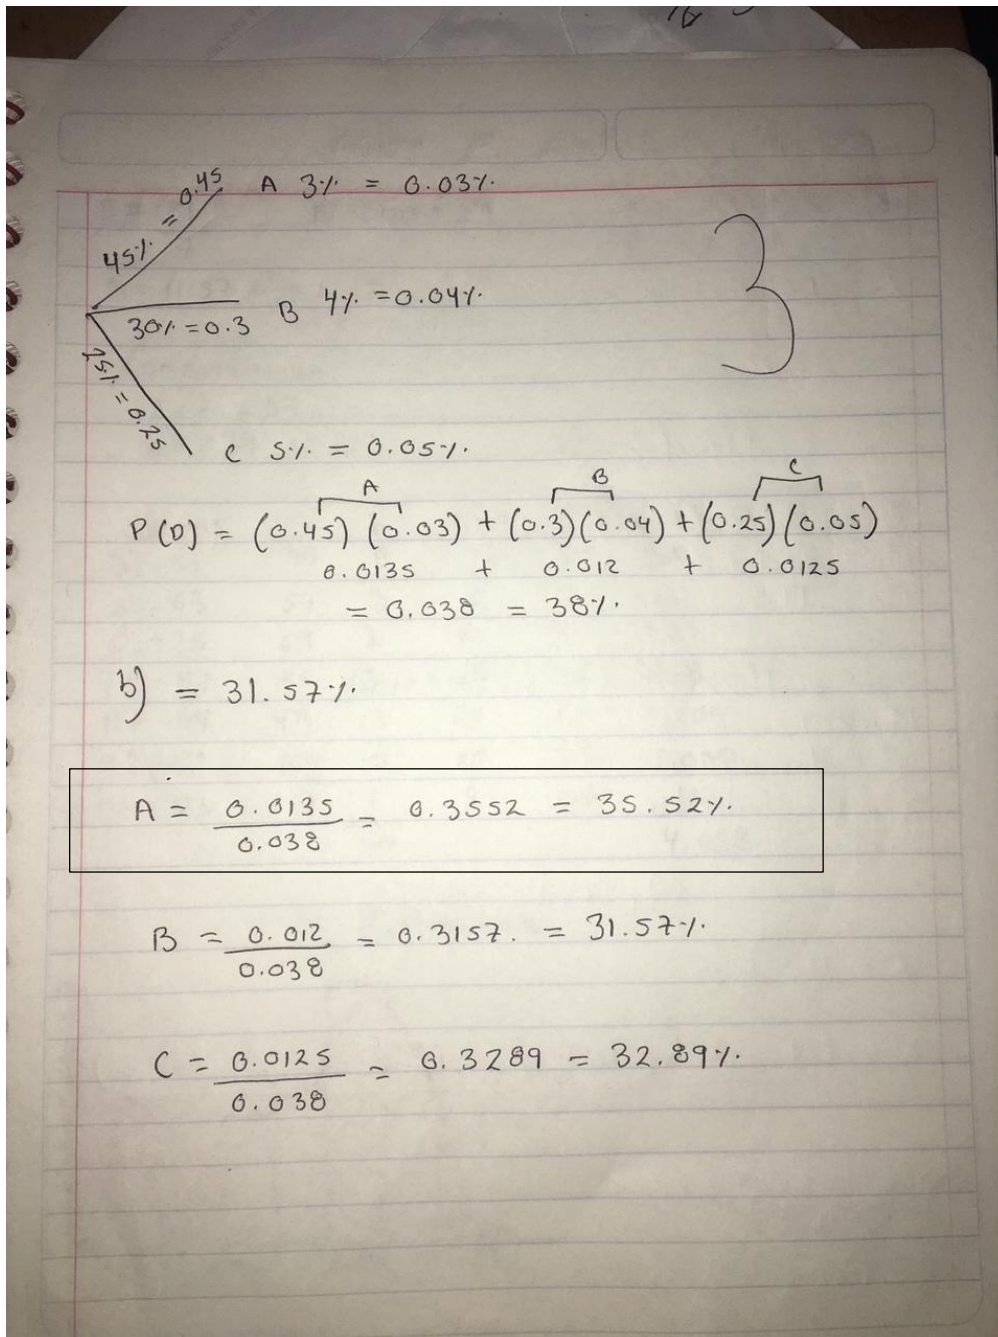 45% = 0.45 A 3% = 0.03%
3
30% = 0.3 B 4% = 0.04%
25% = 0.25
C 5% = 0.05%
A B C
P(D) = (0.45) (0.03) + (0.3)(0.04) + (0.25)(0.05)
0.0135 + 0.012 + 0.0125
= 0.038 = 38%
b) = 31.57%
A = 0.0135 / 0.038 = 0.3552 = 35.52%
B = 0.012 / 0.038 = 0.3157. = 31.57%
C = 0.0125 / 0.038 = 0.3289 = 32.89%